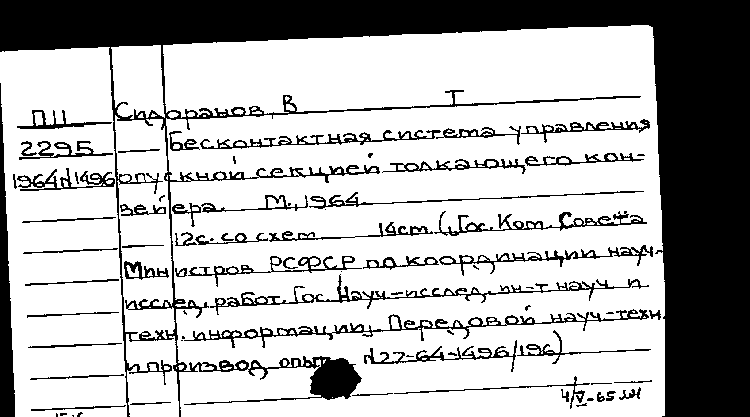 ПII Сидоранов, В Т
2295 Бесконтактная система управления
1964N1496 опускной секцией толкающего кон-
вейера. М., 1964.
12с. со схем 14cm. (Гос. Ком. Совета
Министров РСФСР по координации науч-
исслед. работ. Гос. Науч-исслед. ин-т науч и
техн. информации. Передовой науч-техн.
и производ опыт N27-64-1496/196)
4/V-65